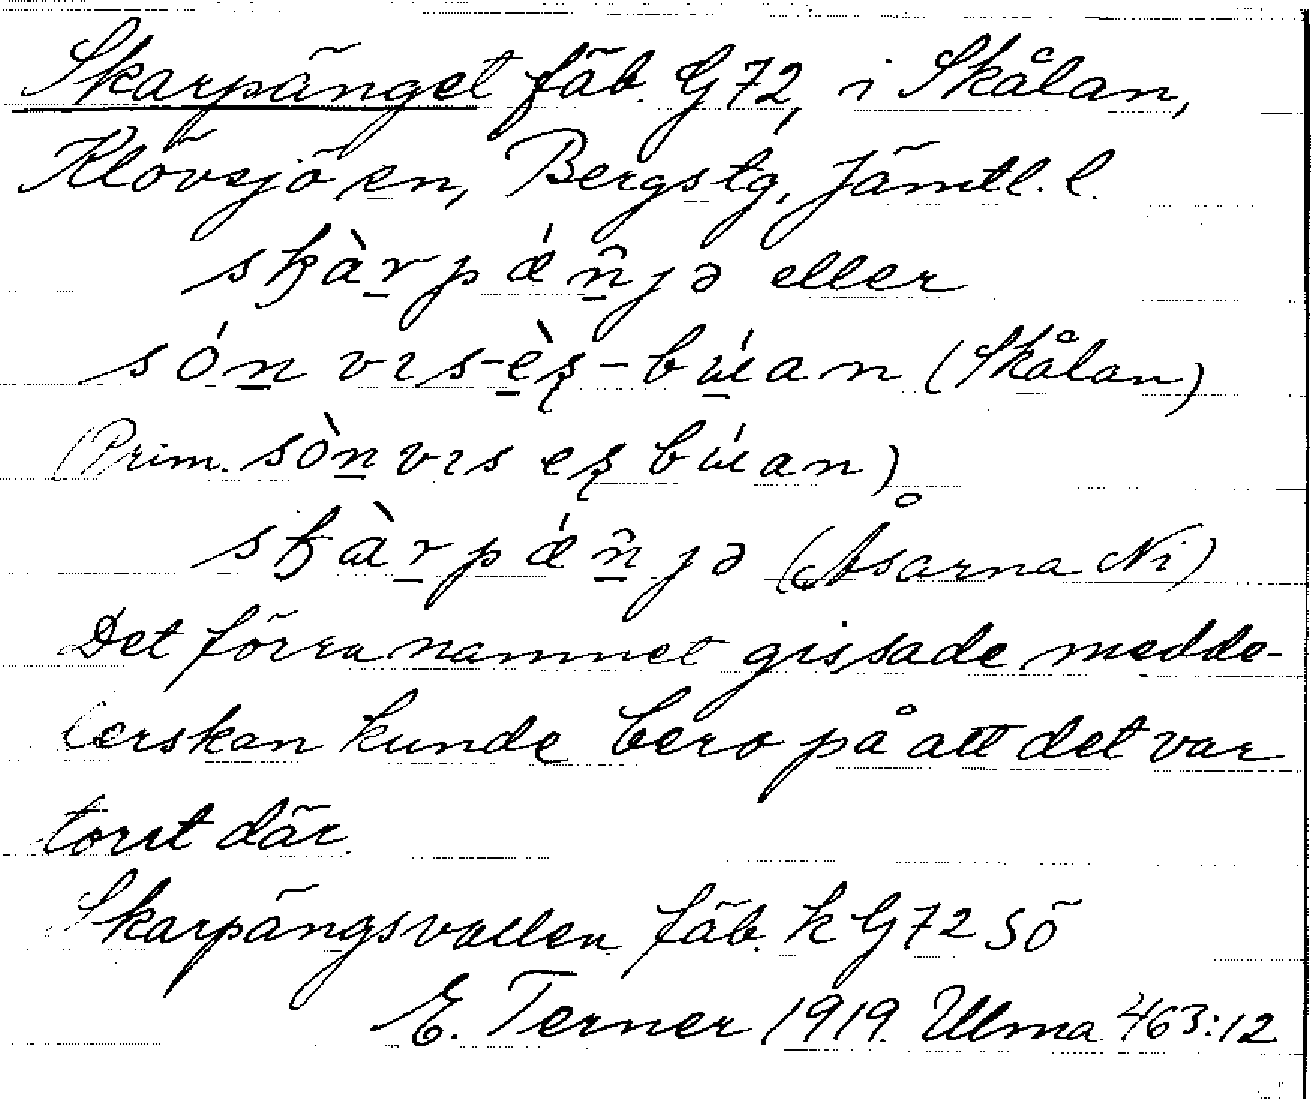 Skarpänget fäb. G72, i Skålan,
Klövsjö sn, Bergs tg, Jämtl. l.
skàrpǽn̂jə eller
sónvıs-èʂ-búan (Skålan)
(Prim. sònvıs eʂ búan)
skàrpǽn̂jə (Åsarna Ni)
Det förra namnet gissade medde-
lerskan kunde bero på att det var
torrt där.
Skarpängsvallen fäb. k G72 SÖ
E. Terner 1919. Ulma 463:12